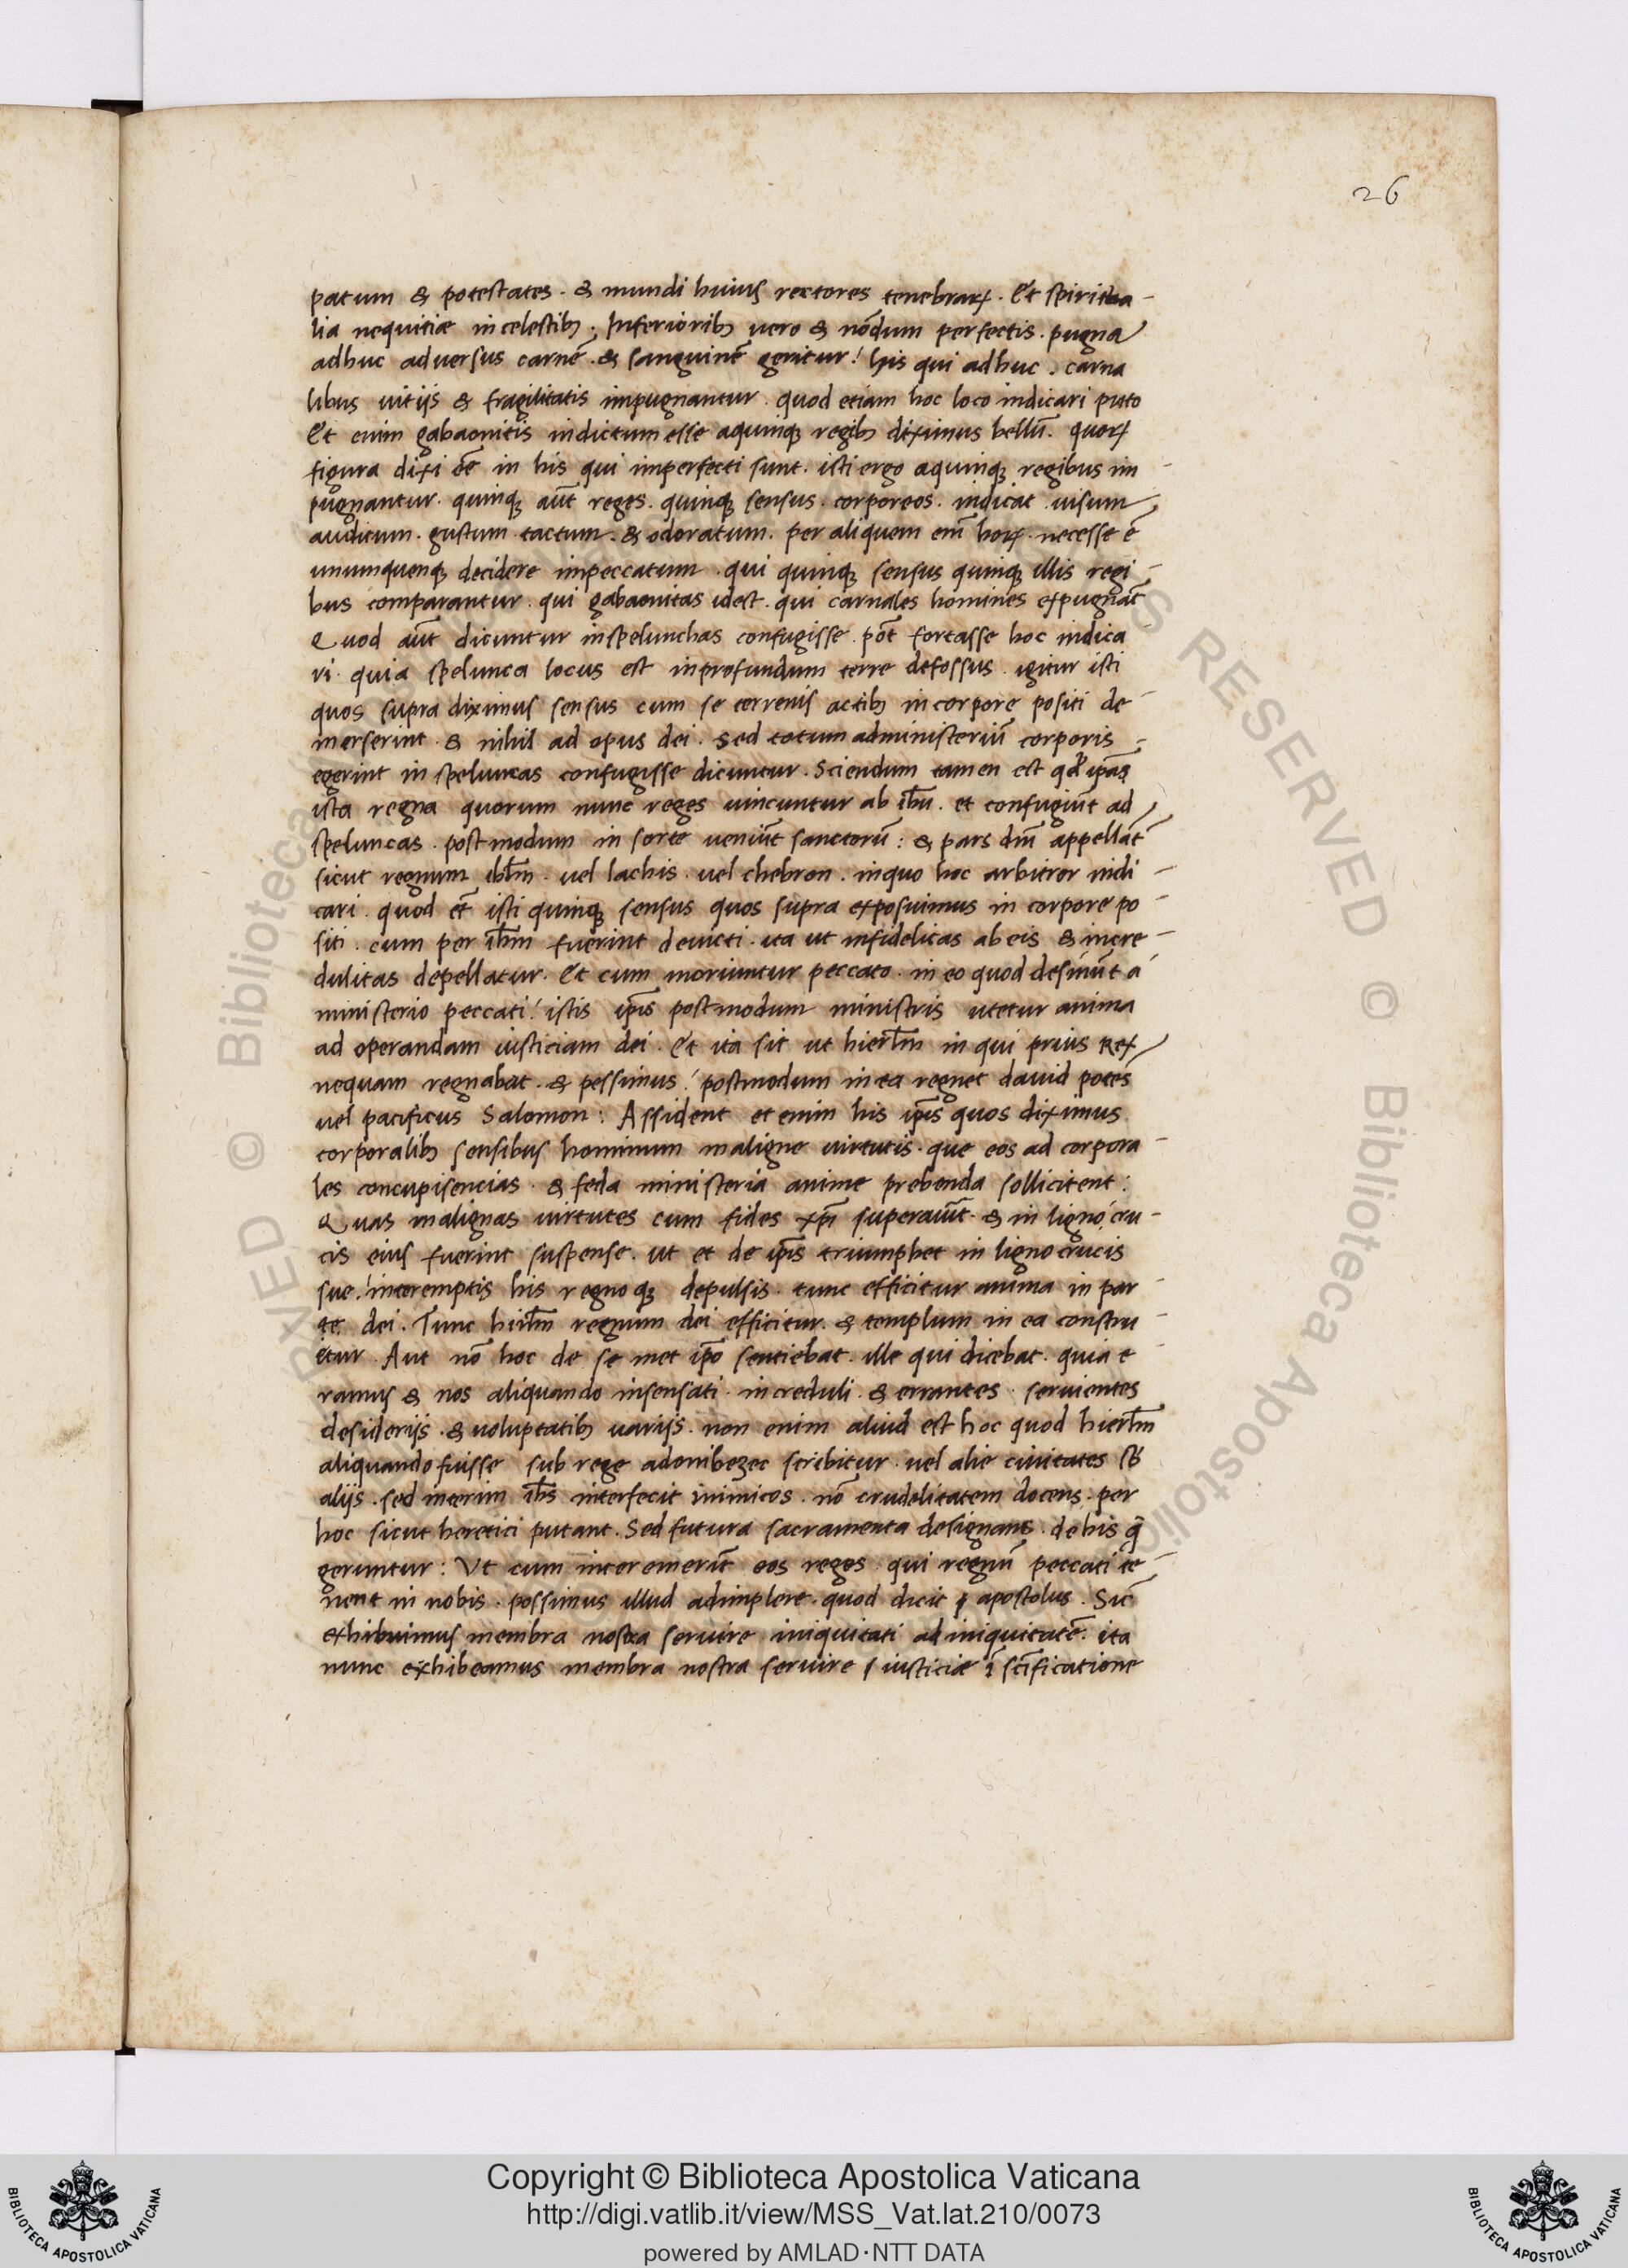 26
patum & potestates. & mundi huius rectores tenebraꝝ. Et spiritua-
lia nequitiæ in celestibꝫ. Inferioribꝫ uero & nōdum perfectis. pugna
adhuc aduersus carnē. & sanguinē geritur! his qui adhuc. carna
libus uitijs & fragilitatis impugnantur. quod etiam hoc loco indicari puto
Et enim gabaonitis indictum esse aquinqꝫ regibꝫ diximus bellū. quoꝝ
figura dixi eē in his qui imperfecti sunt. isti ergo aquinqꝫ regibus im-
pugnantur. quinqꝫ aūt reges. quinqꝫ sensus. corporeos. indicat. uisum
auditum. gustum. tactum. & odoratum. per aliquem eīm hoꝝ. necesse ē
unumquenqꝫ decidere impeccatum. qui quinqꝫ sensus quinqꝫ illis regi-
bus comparantur. qui gabaonitas idest. qui carnales homines expugnāt
Quod aūt dicuntur inspelunchas confugisse. pōt fortasse hoc indica
ri. quia spelunca locus est inprofundum terre defossus. igitur isti
quos supra diximus sensus cum se terrenis actibꝫ incorpore positi de-
merserint. & nihil ad opus dei. sed totum administeriū corporis-
egerint in speluncas confugisse dicuntur. Sciendum tamen est qđ ipāꝫ
ista regna quorum nunc reges uincuntur ab ihu. et confugiūt ad
speluncas. postmodum in sorte ueniūt sanctorū: & pars dnī appellāt
sicut regnum ihlm. uel lachis. uel chebron. inquo hoc arbitror indi-
cari. quod et̄ isti quinqꝫ sensus quos supra exposuimus in corpore po-
siti. cum per ihm fuerint deuicti. ita ut infidelitas ab eis & incre-
dulitas depellatur. Et cum moriuntur peccato. in eo quod desinūt a
ministerio peccati! istis ipīs postmodum ministris utetur anima
ad operandam iusticiam dei. Et ita sit ut hierlm in qui prius Rex
nequam regnabat. & pessimus! postmodum in ea regnet dauid potēs
uel pacificus Salomon: Assident et enim his ipīs quos diximus
corporalibꝫ sensibus hominum maligne uirtutis. que eos ad corpora-
les concupisencias. & feda ministeria anime prebenda sollicitent:
Quas malignas uirtutes cum fides xpī superauīt. & in ligno cru-
cis eius fuerint suspense. ut et de ipīs triumphet in ligno crucis
sue! interemptis his regno qꝫ depulsis. tunc efficitur anima in par-
te dei. Tunc hierlm regnum dei efficitur. & templum in ea constru-
etur. Aut nō hoc de se met ipō sentiebat. ille qui dicebat. quia e-
ramus & nos aliquando insensati. increduli. & errantes. seruientes
desiderijs. & uoluptatibꝫ uarijs. non enim aliud est hoc quod hierlm
aliquando fuisse sub rege adonibezec scribitur. uel alie ciuitates sb
alijs. sed interim ihs interfecit inimicos. nō crudelitatem docens. per
hoc sicut heretici putant. Sed futura sacramenta designans. de his q̄
geruntur: Vt cum interemerīt eos reges qui regnū peccati te-
nent in nobis. possimus illud adimplere. quod dicit apostolus. Sic̄
exhibuimus membra nostra seruire iniquitati ad iniquitatē. ita
nunc exhibeamus membra nostra seruire iusticiæ ī scīficatione
Copyright © Biblioteca Apostolica Vaticana
http://digi.vatlib.it/view/MSS_Vat.lat.210/0073
powered by AMLAD·NTT DATA
BIBLIOTECA APOSTOLICA VATICANA
BIBLIOTECA APOSTOLICA VATICANA